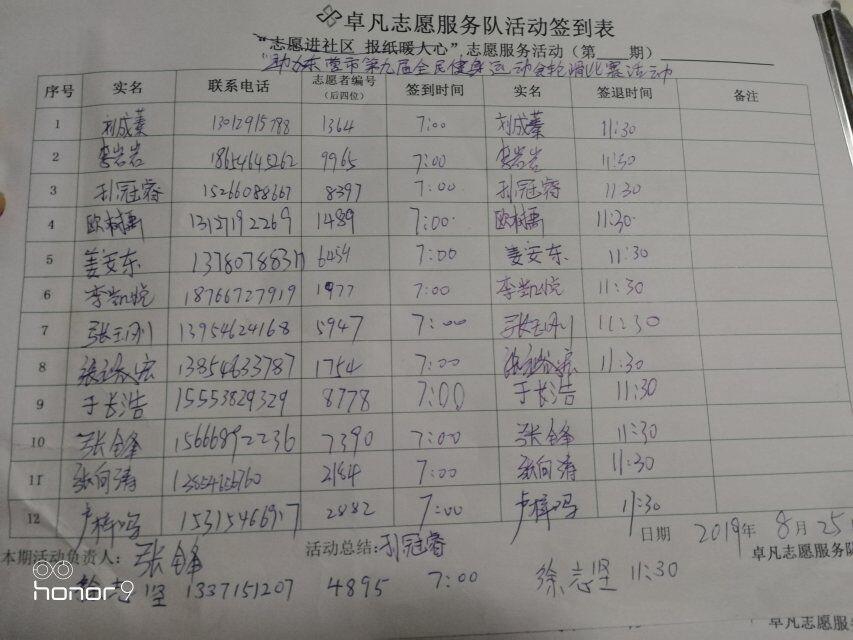 卓凡志愿服务队活动签到表
“志愿进社区 报纸暖人心”志愿服务活动（第 期）
助力东营市第九届全民健身运动会轮滑比赛活动
序号 实名 联系电话 志愿者编号（后四位） 签到时间 实名 签退时间 备注
1 刘成蓁 13012915788 1364 7:00 刘成蓁 11:30
2 李岩岩 18654645262 9965 7:00 李岩岩 11:30
3 孙冠睿 15266088667 8397 7:00 孙冠睿 11:30
4 1489 7:00 11:30
5 姜安东 7:00 姜安东 11:30
6 李凯悦 18766727919 1977 7:00 李凯悦 11:30
7 13954624168 5947 7:00 11:30
8 13854633787 1754 7:00 11:30
9 于长浩 15553829329 8778 7:00 于长浩 11:30
10 张锋 15666892236 7390 7:00 张锋 11:30
11 2184 7:00 11:30
12 2882 7:00 11:30
日期 2019年8月25
本期活动负责人：张锋 活动总结:孙冠睿 卓凡志愿服务队
徐志坚 1337151207 4895 7:00 徐志坚 11:30
honor9
卓凡志愿服